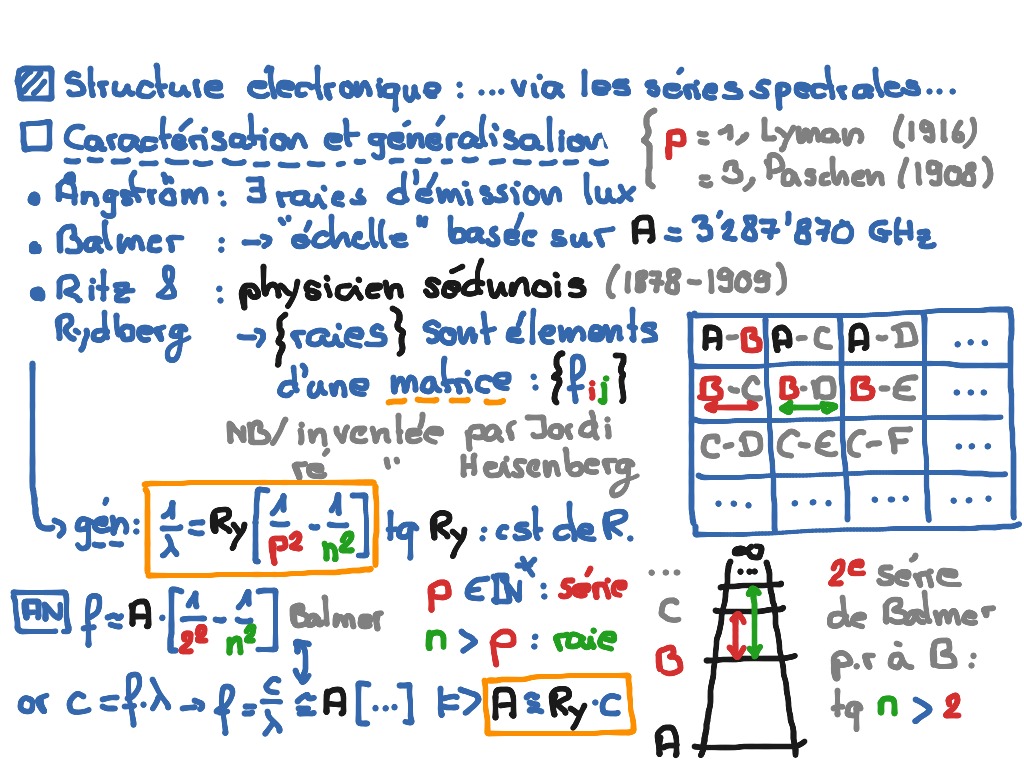 Structure électronique : ... via les séries spectrales...
Caractérisation et généralisation
{ p = 1, Lyman (1916)
= 3, Paschen (1908)
• Angström : ∃ raies d'émission lux
• Balmer : → "échelle" basée sur A = 3'287'870 GHz
• Ritz & : physicien sédunois (1878-1909)
Rydberg → {raies} sont élements
d'une matrice : {fij}
NB/ inventée par Jordi
ré " Heisenberg
A-B A-C A-D ...
B-C B-D B-E ...
C-D C-E C-F ...
... ... ... ...
→ gén: 1/λ = Ry [1/p² - 1/n²] tq Ry : cst de R.
p ∈ ℕ* : série
n > p : raie
AN f ≈ A · [1/2² - 1/n²] Balmer
or c = f·λ → f = c/λ ≈ A [...] ⊨> A ≈ Ry · c
∞
... ...
C
B
A
2e série
de Balmer
p.r à B :
tq n > 2